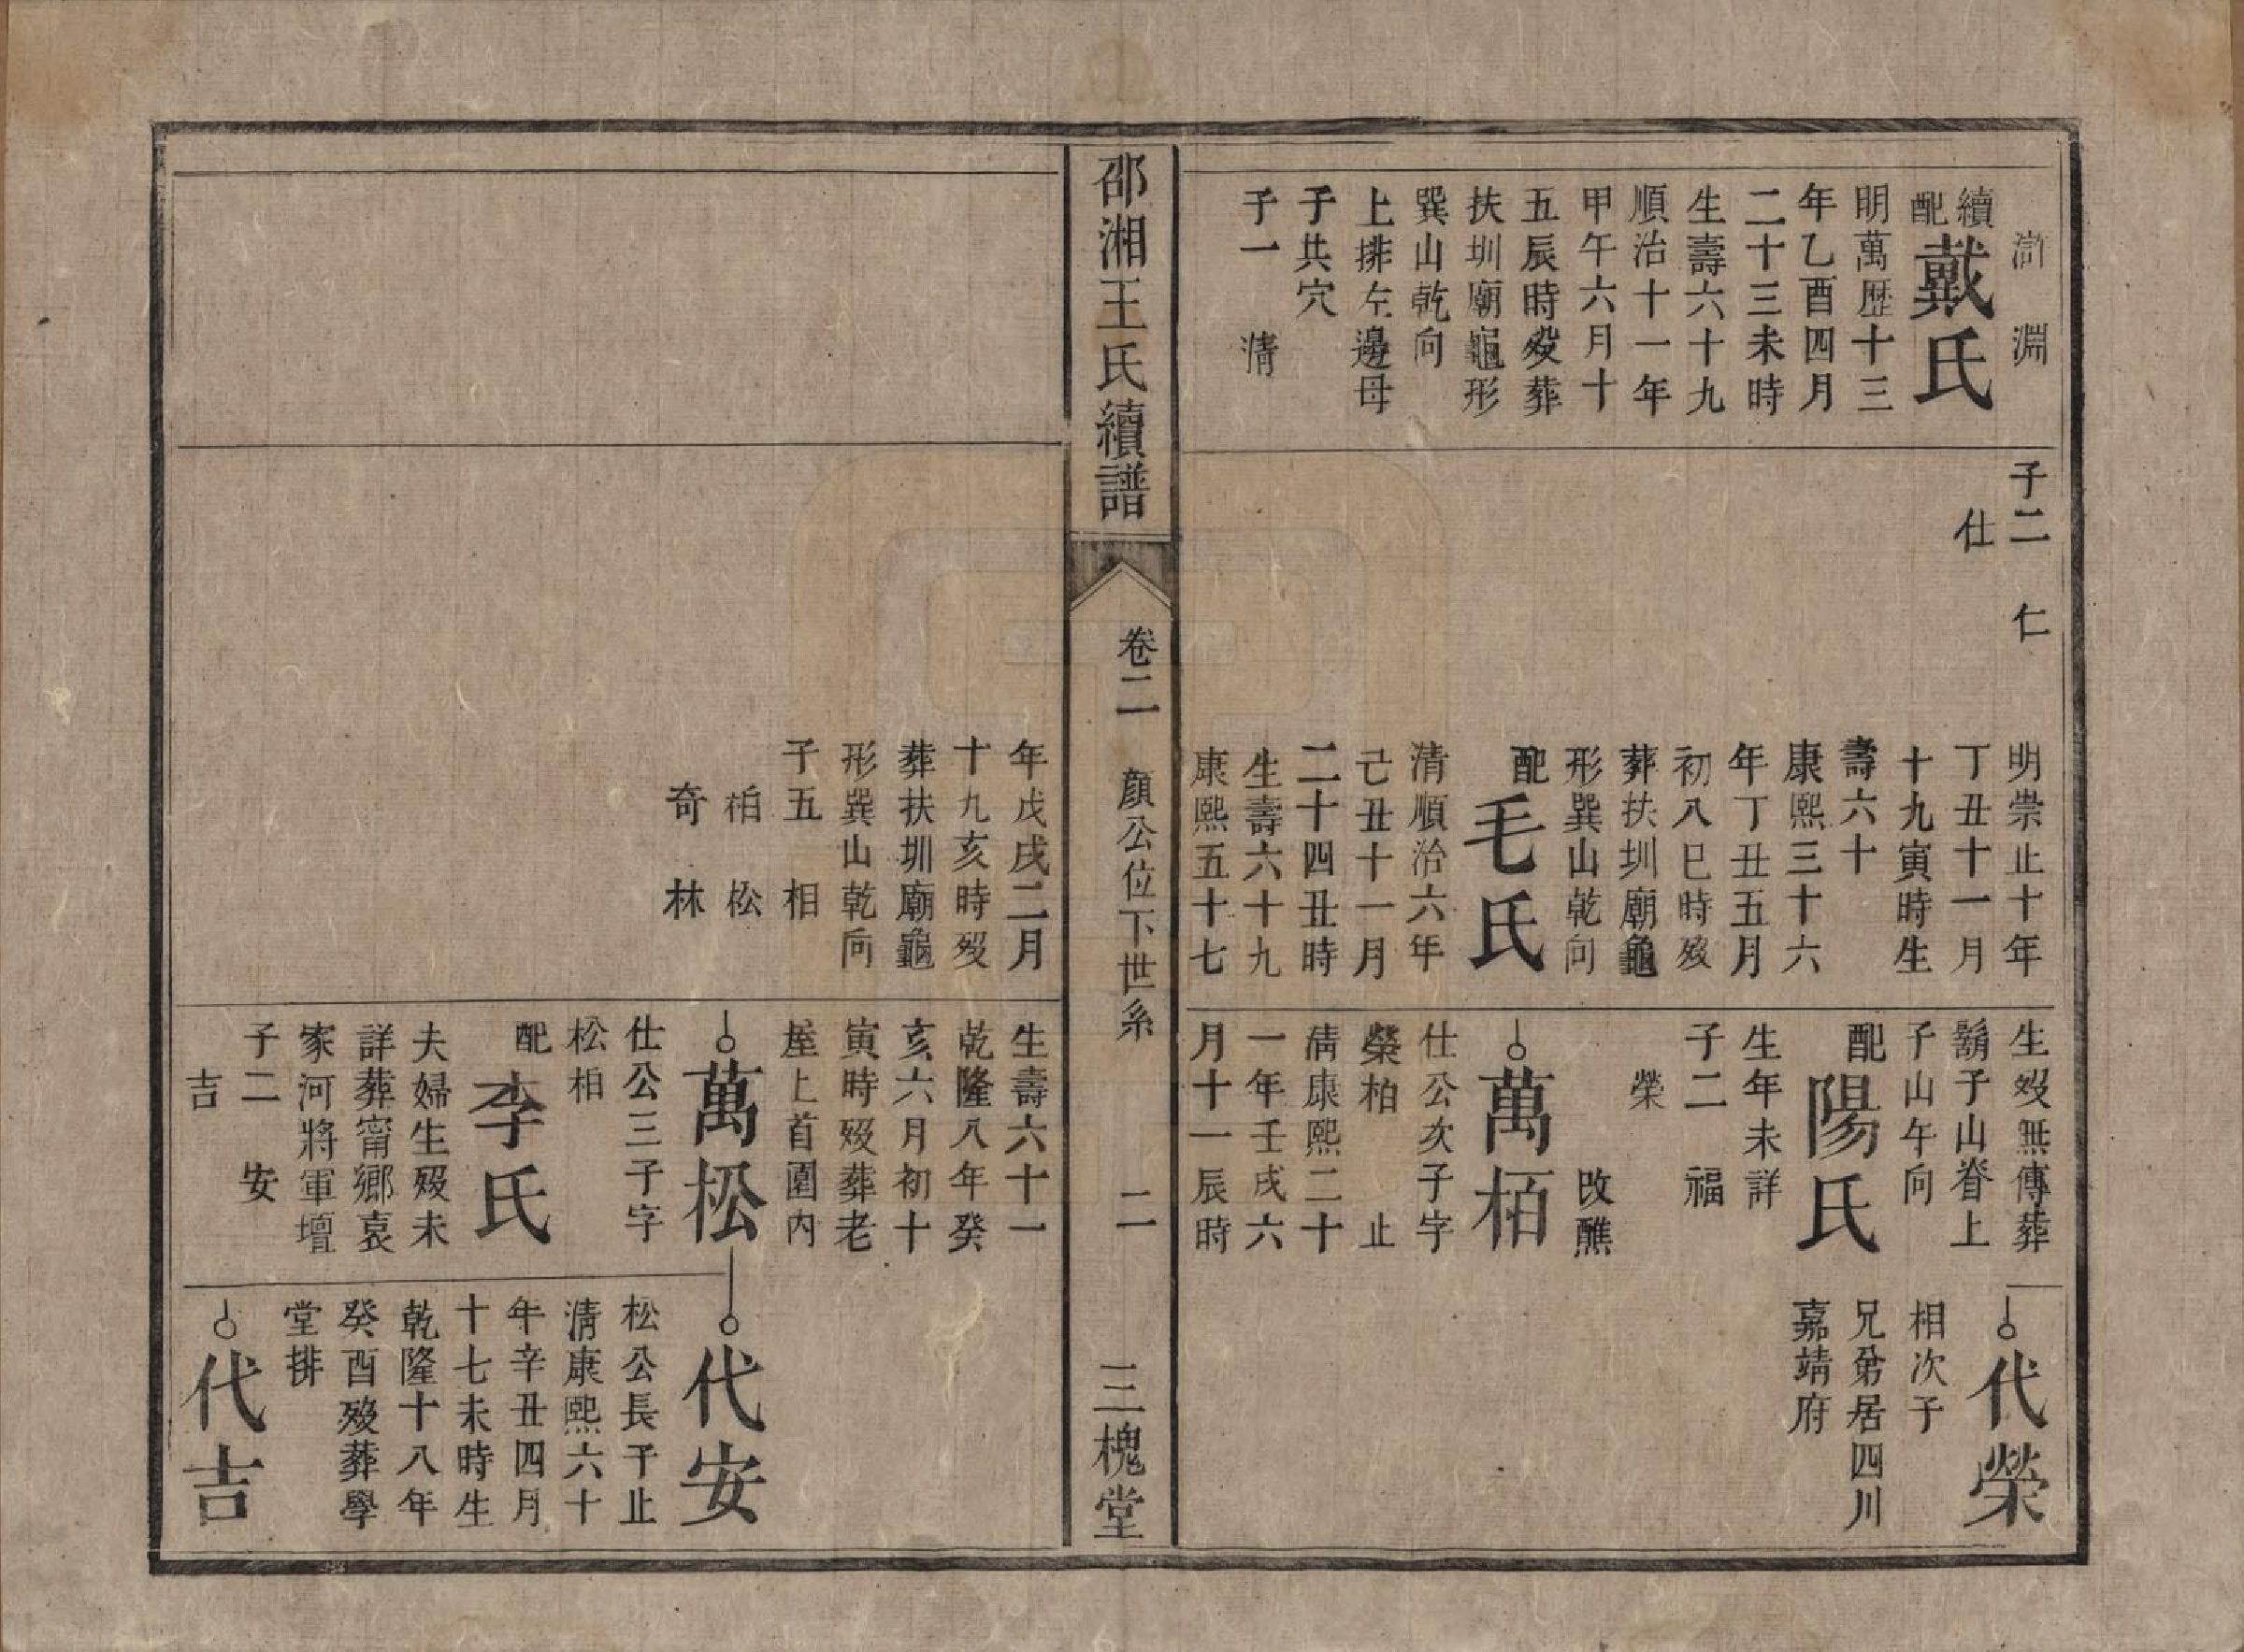 滸淵
續配戴氏
明萬歷十三
年乙酉四月
二十三未時
生壽六十九
順治十一年
甲午六月十
五辰時歿葬
扶圳廟龜形
巽山乾向
上排左邊母
子共穴
子一 清
子二 仁
仕
明崇止十年
丁丑十一月
十九寅時生
壽六十
康熙三十六
年丁丑五月
初八巳時歿
葬扶圳廟龜
形巽山乾向
配毛氏
清順治六年
己丑十一月
二十四丑時
生壽六十九
康熙五十七
生歿無傳葬
鬍子山脊上
子山午向
配陽氏
生年未詳
子二 福
榮
改醮
萬栢
仕公次子字
榮柏 止
清康熙二十
一年壬戌六
月十一辰時
代榮
相次子
兄弟居四川
嘉靖府
邵湘王氏續譜
卷二 顏公位下世系 二
三槐堂
年戊戌二月
十九亥時歿
葬扶圳廟龜
形巽山乾向
子五 相
栢 松
奇 林
生壽六十一
乾隆八年癸
亥六月初十
寅時歿葬老
屋上首園內
萬松
仕公三子字
松栢
配李氏
夫婦生歿未
詳葬甯鄉袁
家河將軍壇
子二 安
吉
代安
松公長子止
清康熙六十
年辛丑四月
十七未時生
乾隆十八年
癸酉歿葬學
堂排
代吉